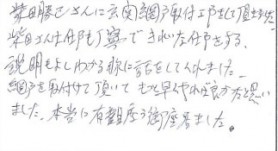 柴田勝己さんに玄関網戸取付工事をして頂きました
柴田さん仕事も丁寧できれいな仕事をする。
説明もよくわかる様に話をしてくれました。
網戸を取付けて頂いてもっと早くやれば良かったと思い
ました。本当に有難度う御座居ました。